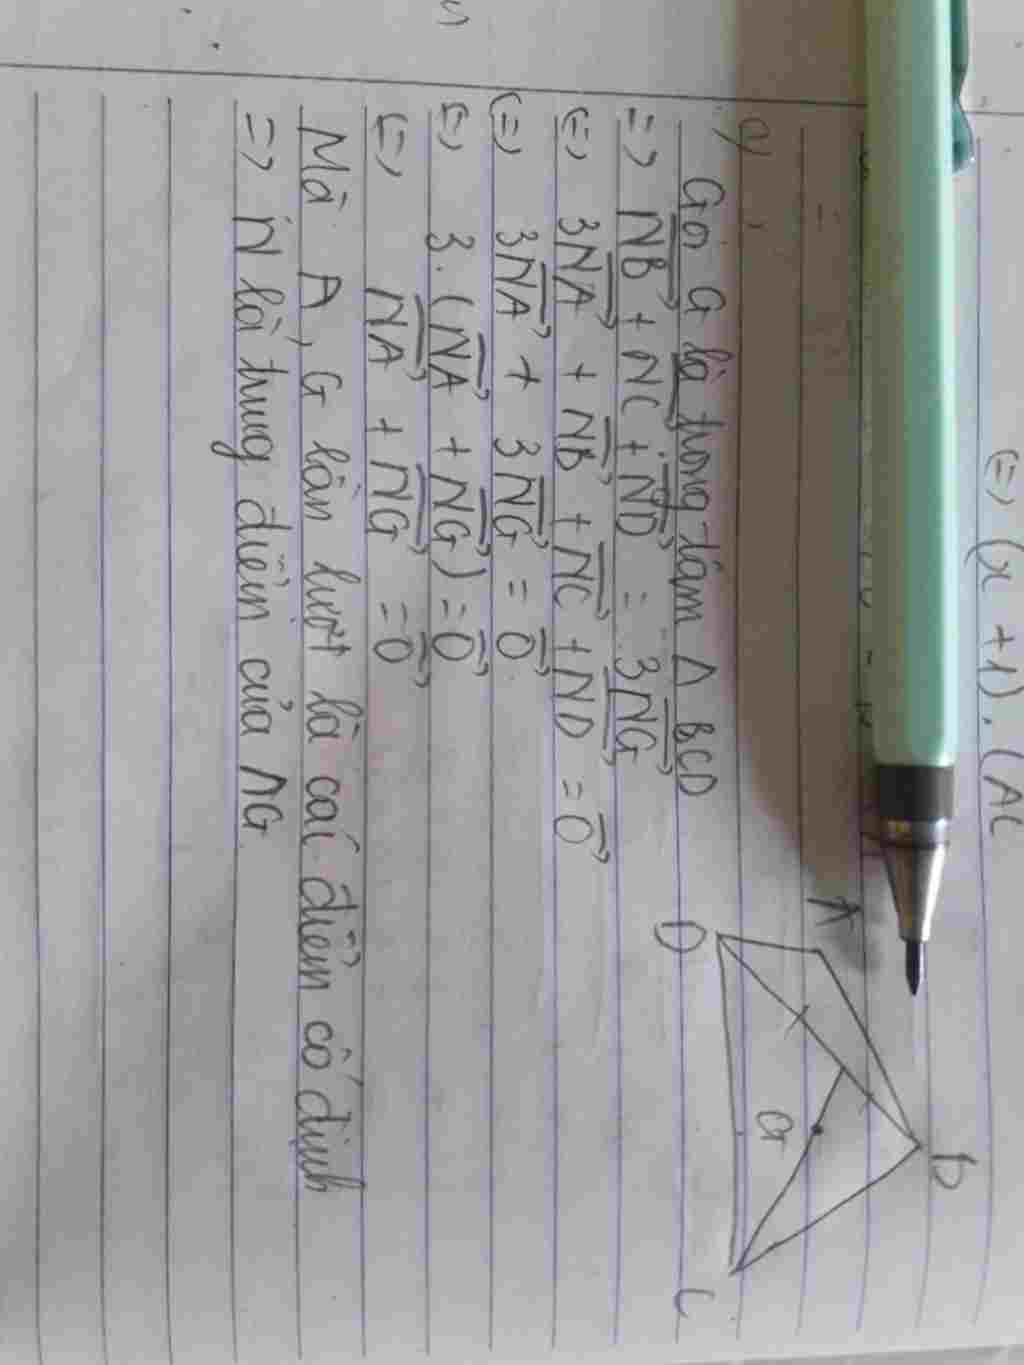 (=) (x + 1). (AC
=
g)
A
B
D
G
C
Gọi G là trọng tâm Δ BCD
=> NB + NC + ND = 3NG
(=) 3NA + NB + NC + ND = 0
(=) 3NA + 3NG = 0
(=) 3. (NA + NG) = 0
(=) NA + NG = 0
Mà A, G lần lượt là các điểm cố định
=> N là trung điểm của AG